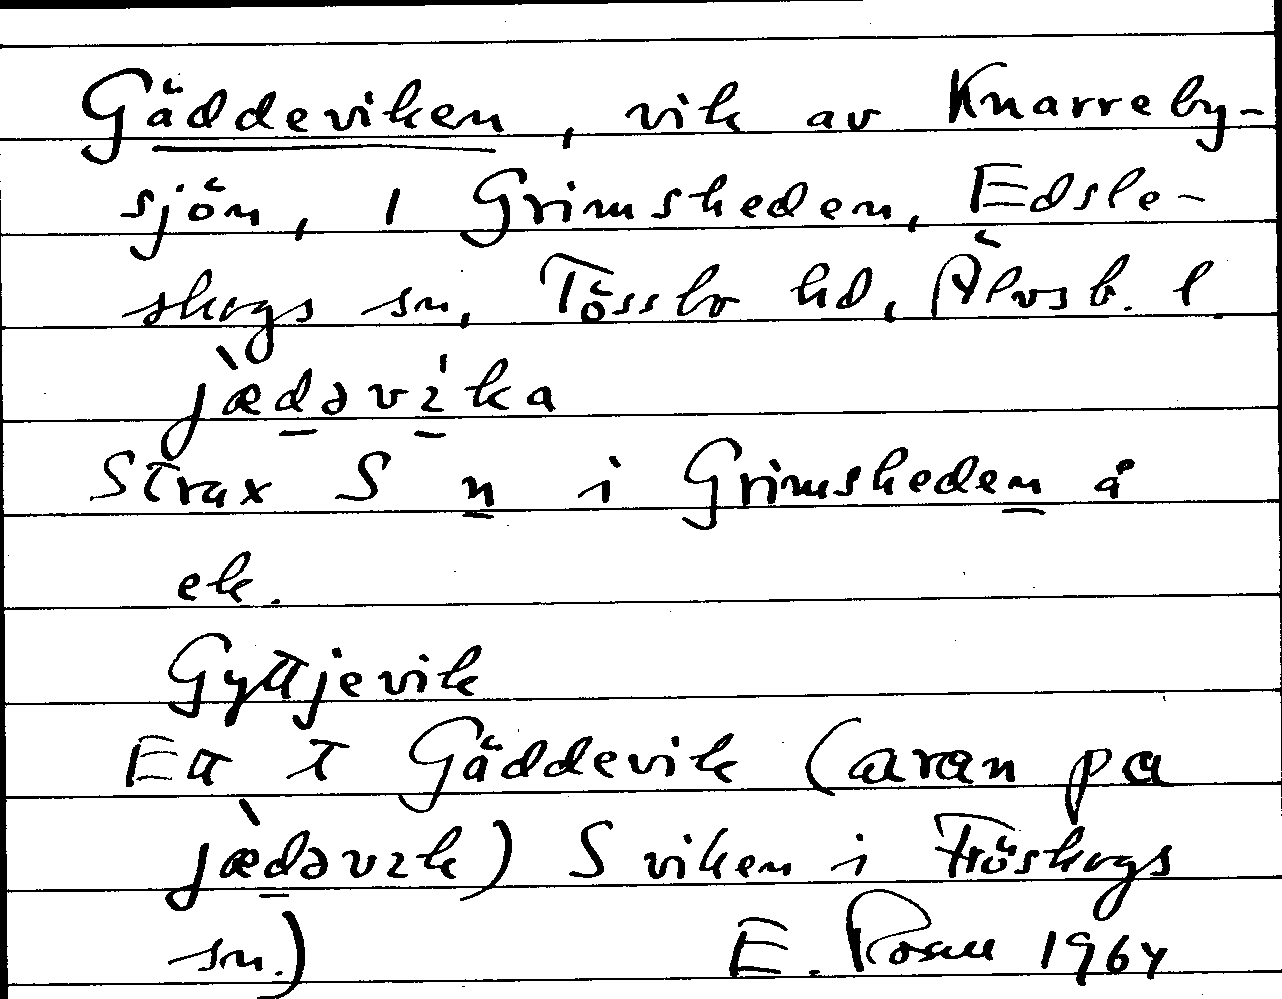 Gäddeviken, vik av Knarreby-
sjön, 1 Grimsheden, Edsle-
skogs sn, Tössbo hd, Älvsb. l.
jædəvika
Strax S n i Grimsheden å
ek.
Gyttjevik
Ett t Gäddevik (aran pa
jædəvik) S viken i Fröskogs
sn.) E. Rosell 1964